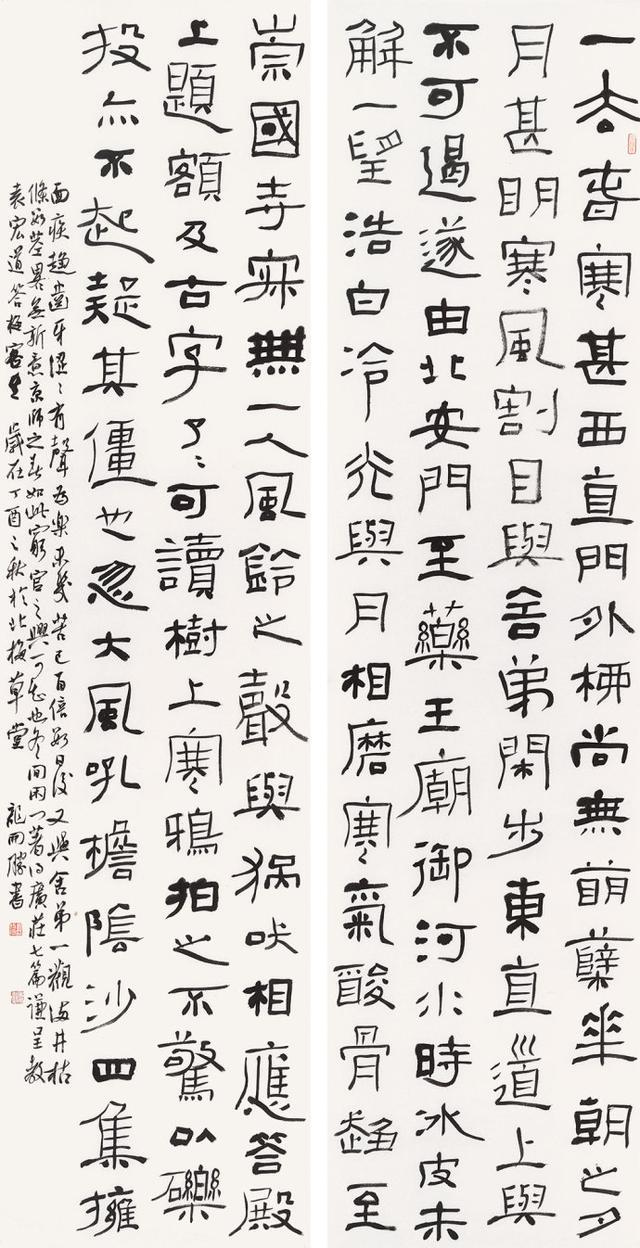 一春寒甚西直門外栁尚無萌蘖華朝之夕
月甚明寒風割目與舍弟閑步東直道上興
不可遏遂由北安門至藥王廟御河水時冰皮未
解一望浩白冷光與月相磨寒氣酸骨趨至
崇國寺寂無一人風鈴之聲與猧吠相應答殿
上題額及古字了了可讀樹上寒鴉拍之不驚以礫
投亦不起疑其僵也忽大風吼檐陰沙四集擁
面疾趨齒牙澀澀有聲為樂未幾苦已百倍數日後又與舍弟一觀滿井枯
條數莖畧無新意京師之春如此窮官之興可知也冬間著得廣莊七篇謹呈教
袁宏道答梅客生 歲在丁酉之秋於北梅草堂 龍雨勝書